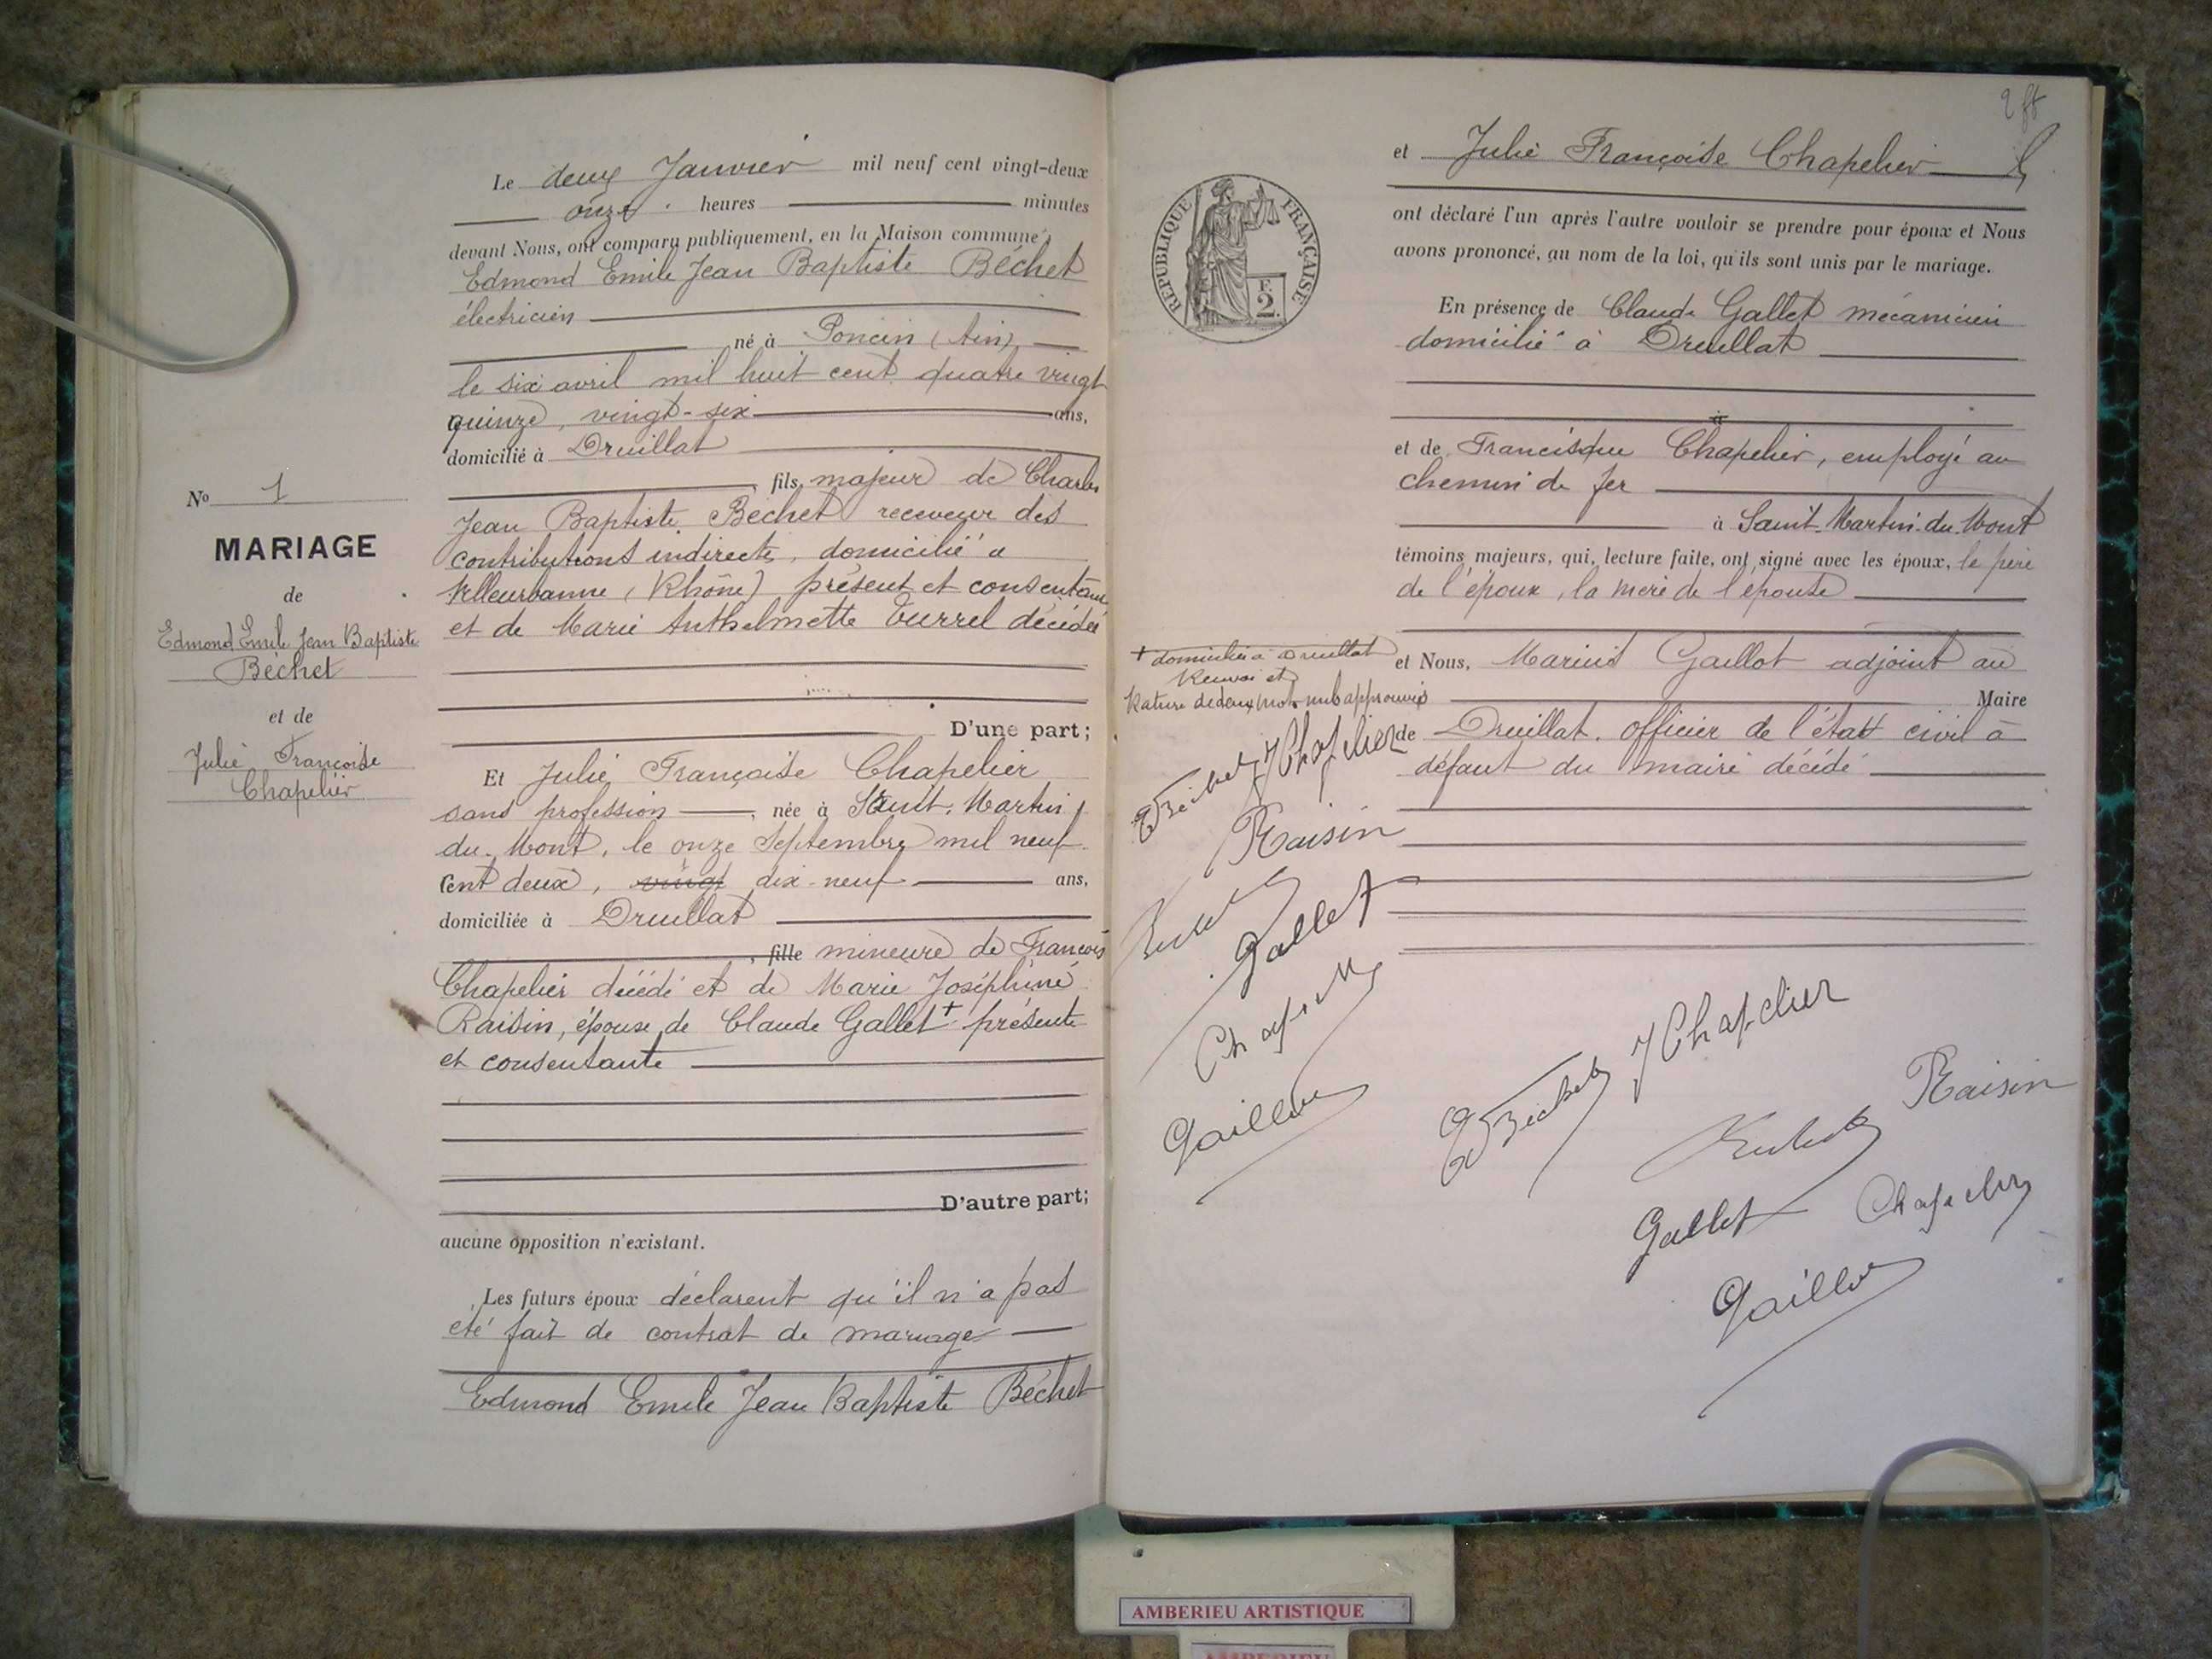 Le deux Janvier mil neuf cent vingt-deux
onze heures minutes
devant Nous, ont comparu publiquement, en la Maison commune,
Edmond Emile Jean Baptiste Béchet
électricien
né à Poncin (Ain)
le six avril mil huit cent quatre vingt
quinze, vingt-six ans,
domicilié à Druillat
, fils majeur de Charles
Jean Baptiste Béchet receveur des
contributions indirects, domicilié a
Villeurbanne (Rhône) présent et consentant
et de Marie Anthelmette décédée
D'une part;
No 1
MARIAGE
de
Edmond Emile Jean Baptiste
Béchet
et de
Julie Françoise
Chapelier
Et Julie Françoise Chapelier
sans profession , née à Saint-Martin
du-Mont, le onze Septembre mil neuf
cent deux, vingt dix-neuf ans,
domiciliée à Druillat
, fille mineure de François
Chapelier décédé et de Marie Joséphine
Raisin, épouse de Claude Gallet + présente
et consentante
D'autre part;
aucune opposition n'existant.
Les futurs époux déclarent qu'il n'a pas
été fait de contrat de mariage
Edmond Emile Jean Baptiste Béchet
REPUBLIQUE FRANÇAISE
F.
2.
et Julie Françoise Chapelier
ont déclaré l'un après l'autre vouloir se prendre pour époux et Nous
avons prononcé, au nom de la loi, qu'ils sont unis par le mariage.
En présence de Claude Gallet mécanicien
domicilié à Druillat
à
et de Francisque Chapelier, employé au
chemin de fer
à Saint-Martin-du-Mont
témoins majeurs, qui, lecture faite, ont signé avec les époux, le père
de l'époux, la mère de l'épouse
et Nous, Marius Gaillot adjoint au
Maire
de Druillat. officier de l'état civil à
défaut du maire décédé
+ domiciliés à Druillat
Renvoi et
Rature de deux mots nuls approuvés
EBéchet JChapelier
Raisin
Béchet
Gallet
Chapelier
Gaillot
EBéchet JChapelier
Raisin
Béchet
Gallet Chapelier
Gaillot
AMBERIEU ARTISTIQUE
AMBERIEU